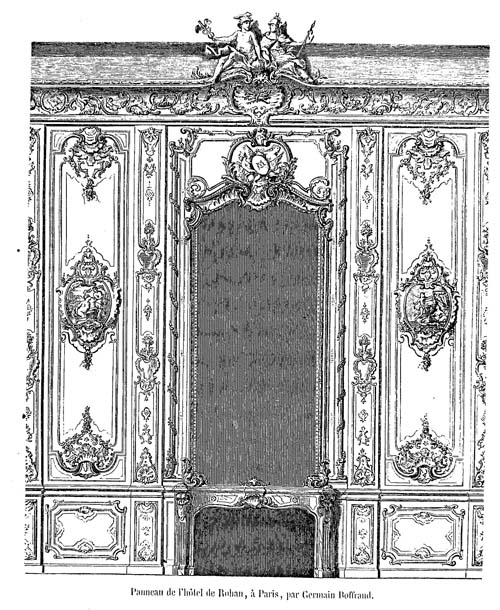 Panneau de l'hôtel de Rohan, à Paris, par Germain Boffrand.